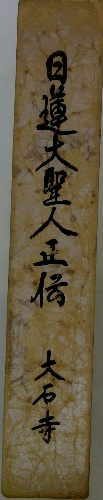 日蓮大聖人正伝
大石寺